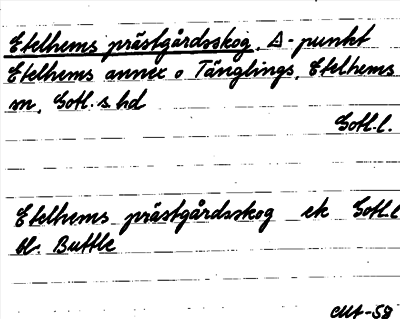 Etelhems prästgårdsskog, Δ-punkt
Etelhems annex o Tänglings, Etelhems
sn, Gotl. s hd
Gotl. l.
Etelhems prästgårdsskog ek Gotl. l
bl. Buttle
-58